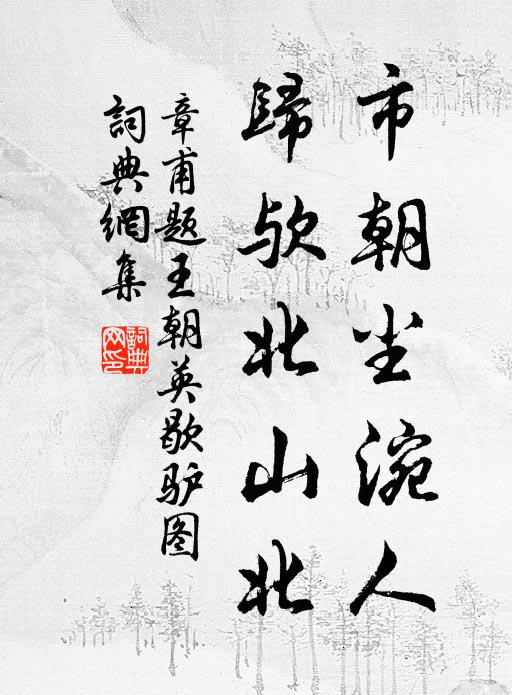 市朝尘涴人
歸欤北山北
章甫题王朝英歇驴图
詞典網集
詞典
网印